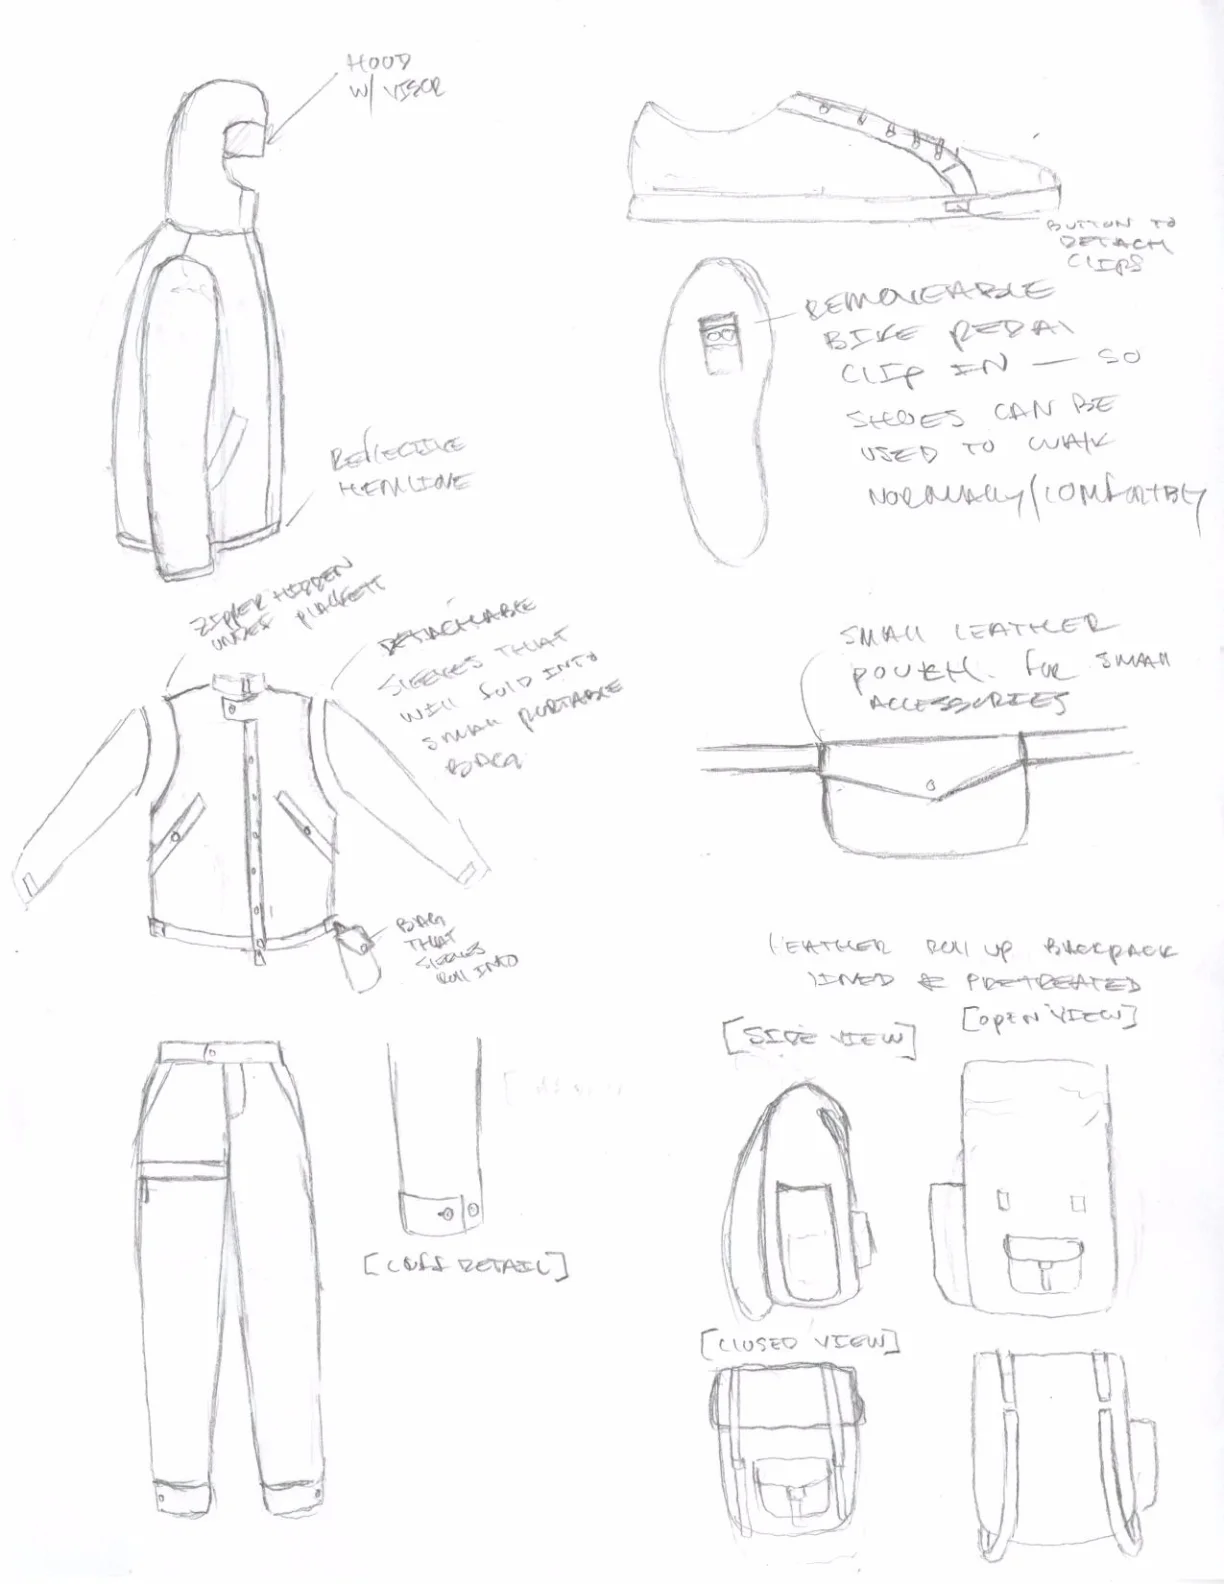 HOOD
W/ VISOR
BUTTON TO
DETACH
CLIPS
REMOVEABLE
BIKE PEDAL
CLIP IN — SO
SHOES CAN BE
USED TO WALK
NORMALLY/COMFORTBLY
REFLECTIVE
HEMLINE
ZIPPER HIDDEN
UNDER PLACKETT
DETACHABLE
SLEEVES THAT
WILL FOLD INTO
SMALL PORTABLE
BAG
SMALL LEATHER
POUCH FOR SMALL
ACCESSORIES
BAG
THAT
SLEEVES
ROLL INTO
LEATHER ROLL UP BACKPACK
LINED & PRETREATED
[SIDE VIEW]
[OPEN VIEW]
[CUFF DETAIL]
[CLOSED VIEW]